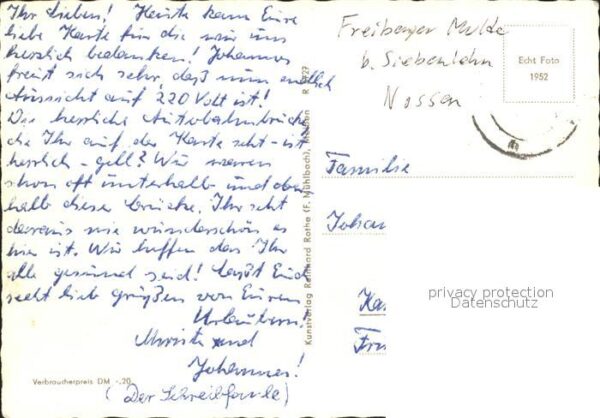 Ihr Lieben! Heute kam Eure
liebe Karte für die wir uns
herzlich bedanken! Johannes
freut sich sehr, daß nun endlich
Aussicht auf 220 Volt ist!
Die herrliche Autobahnbrücke
die Ihr auf der Karte seht - ist
herrlich - gell? Wir waren
schon oft unterhalb und ober
halb dieser Brücke. Ihr seht
daraus wie wunderschön es
hier ist. Wir hoffen das Ihr
alle gesund seid! Lasst Euch
recht lieb grüßen von Euren
Urlaubern!
und
Johannes!
(Der Schreibfaule)
Verbraucherpreis DM -.20
Kunstverlag Reinhard Rothe (F. Mühlbach), Meißen R
Freiberger Mulde
b. Siebenlehn
Nossen
Echt Foto
1952
Familie
Johan
privacy protection
Datenschutz